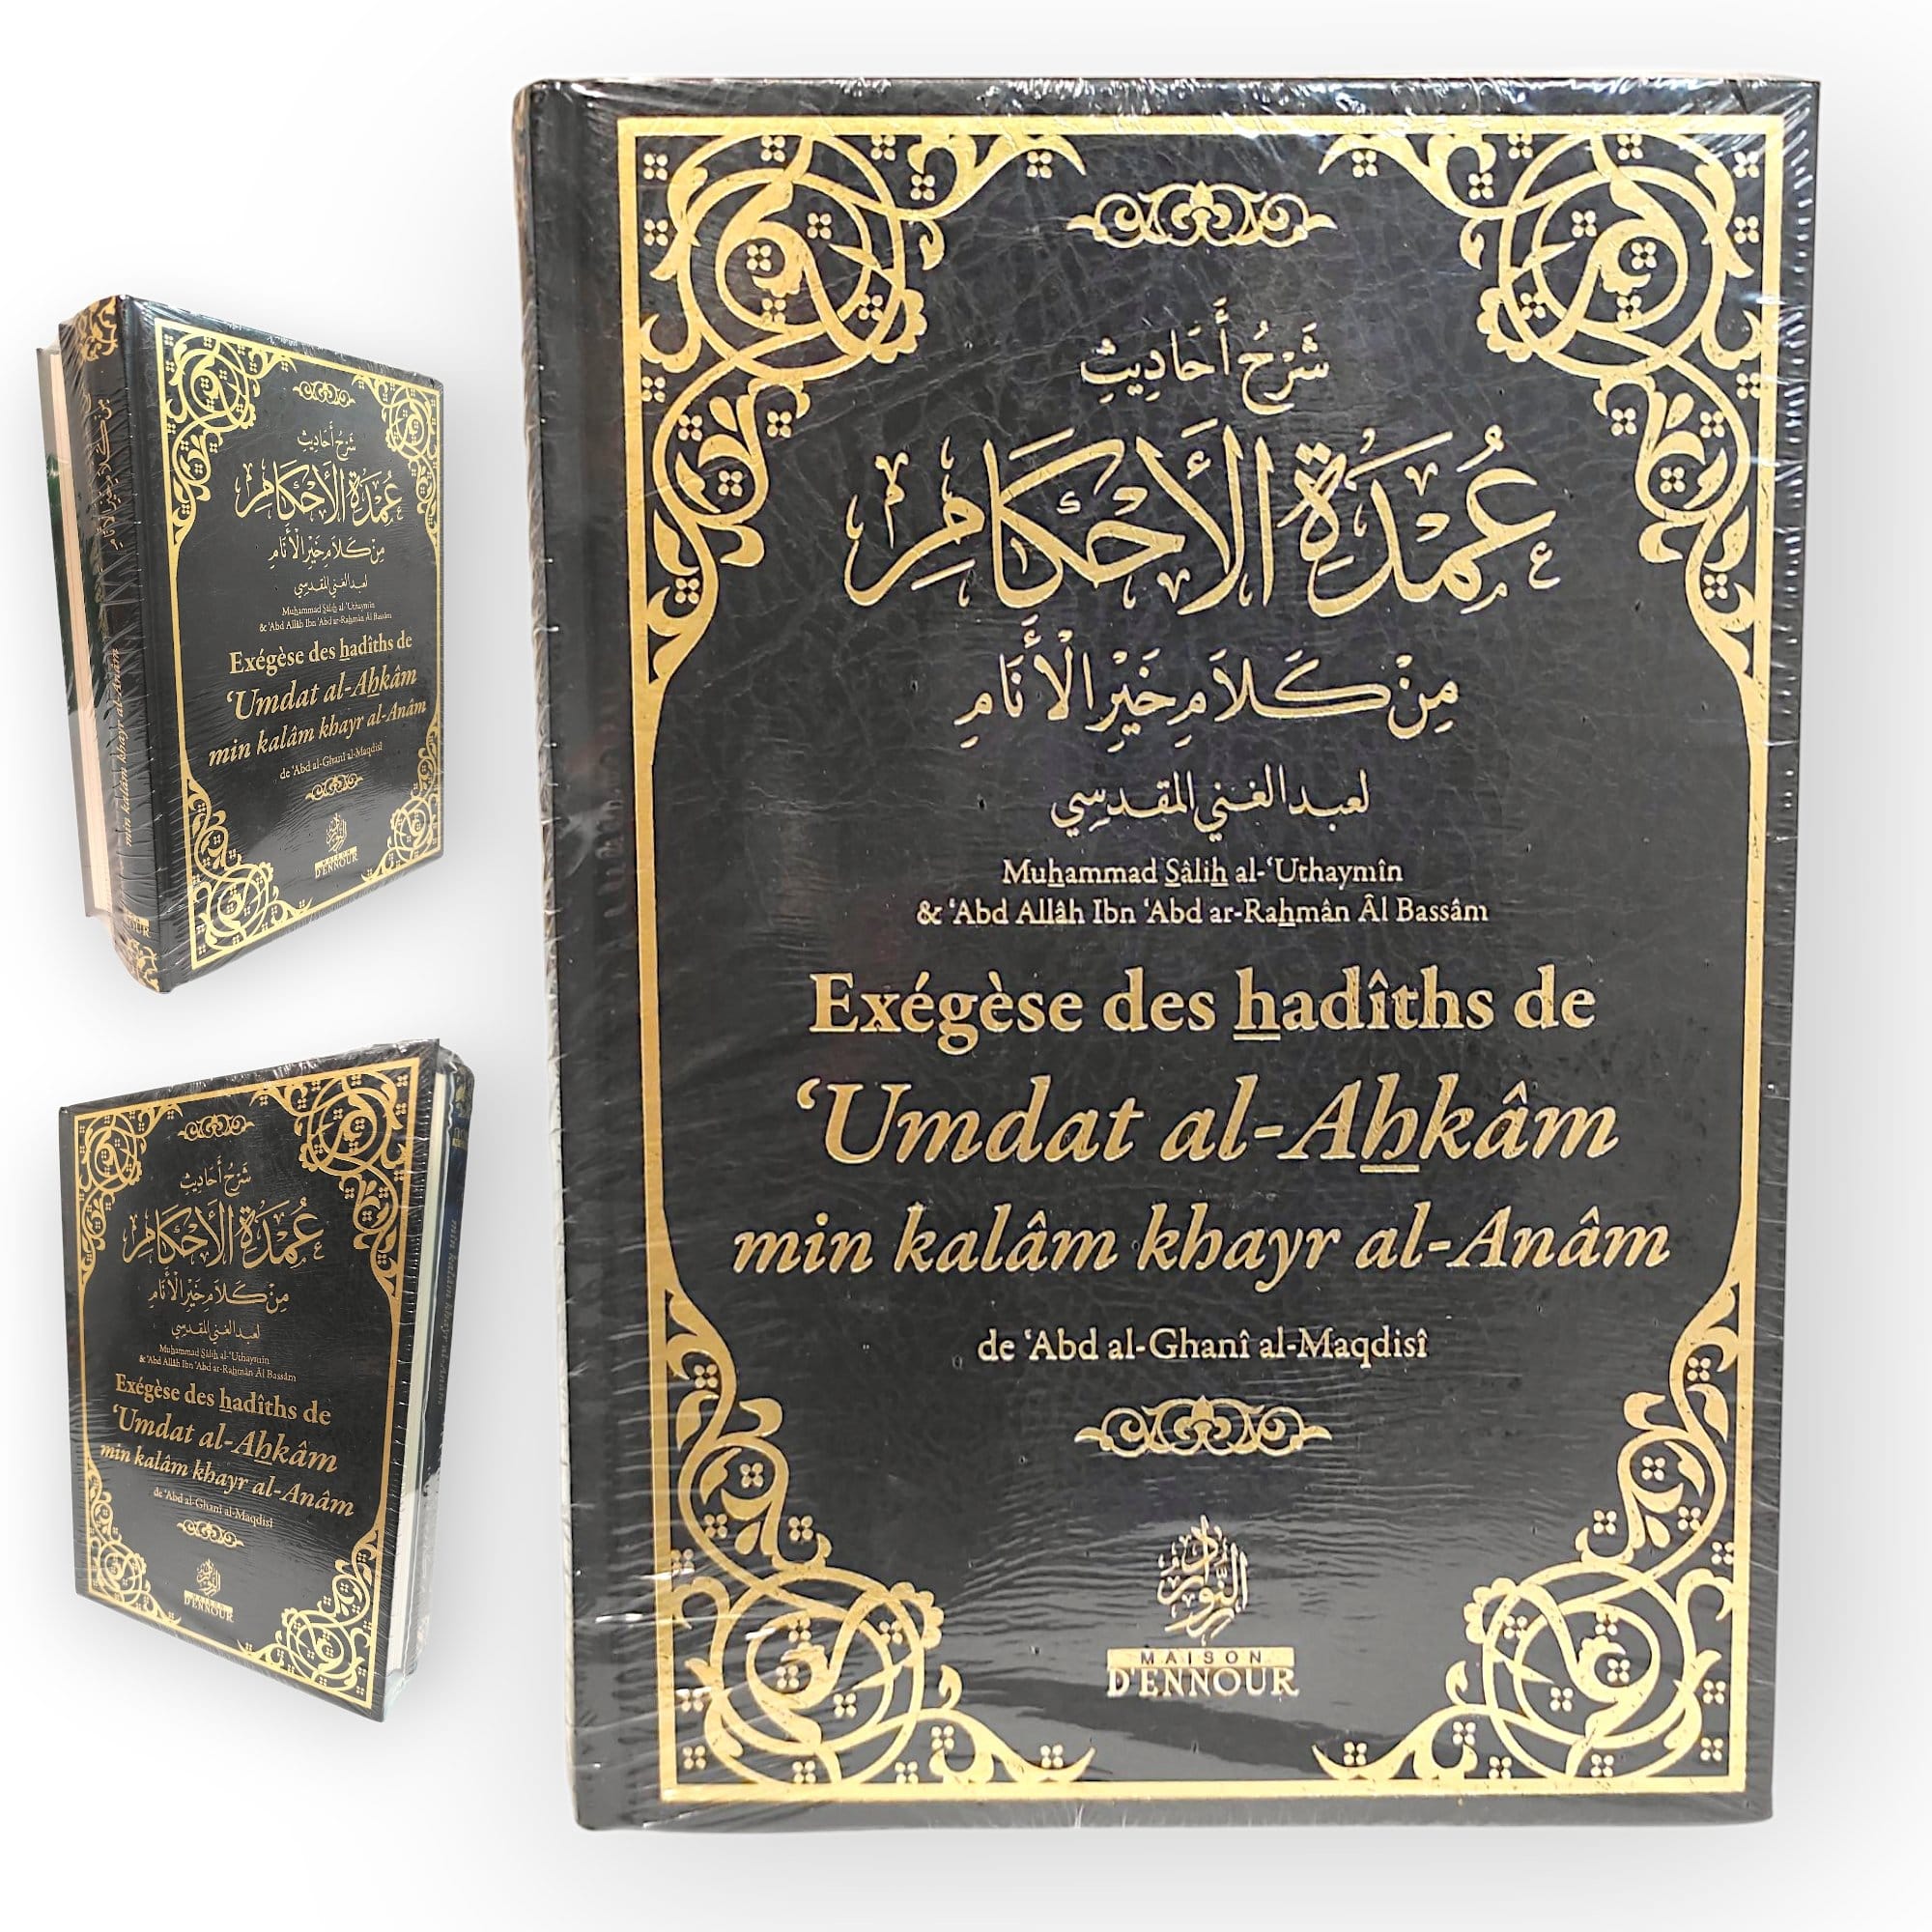 شَرْحُ أَحَادِيثِ
عُمْدَةِ الأَحْكَامِ
مِنْ كَلَامِ خَيْرِ الْأَنَامِ
لعبد الغني المقدسي
Muhammad Sâlih al-‘Uthaymîn
& ‘Abd Allâh Ibn ‘Abd ar-Rahmân Âl Bassâm
Exégèse des hadîths de
‘Umdat al-Ahkâm
min kalâm khayr al-Anâm
de ‘Abd al-Ghanî al-Maqdisî
MAISON
D'ENNOUR
مِنْ كَلَامِ خَيْرِ الْأَنَامِ
min kalâm khayr al-Anâm
شَرْحُ أَحَادِيثِ
عُمْدَةِ الأَحْكَامِ
مِنْ كَلَامِ خَيْرِ الْأَنَامِ
لعبد الغني المقدسي
Muhammad Sâlih al-‘Uthaymîn
& ‘Abd Allâh Ibn ‘Abd ar-Rahmân Âl Bassâm
Exégèse des hadîths de
‘Umdat al-Ahkâm
min kalâm khayr al-Anâm
de ‘Abd al-Ghanî al-Maqdisî
MAISON
D'ENNOUR
شَرْحُ أَحَادِيثِ
عُمْدَةِ الأَحْكَامِ
مِنْ كَلَامِ خَيْرِ الْأَنَامِ
لعبد الغني المقدسي
Muhammad Sâlih al-‘Uthaymîn
& ‘Abd Allâh Ibn ‘Abd ar-Rahmân Âl Bassâm
Exégèse des hadîths de
‘Umdat al-Ahkâm
min kalâm khayr al-Anâm
de ‘Abd al-Ghanî al-Maqdisî
MAISON
D'ENNOUR
min kalâm khayr al-Anâm